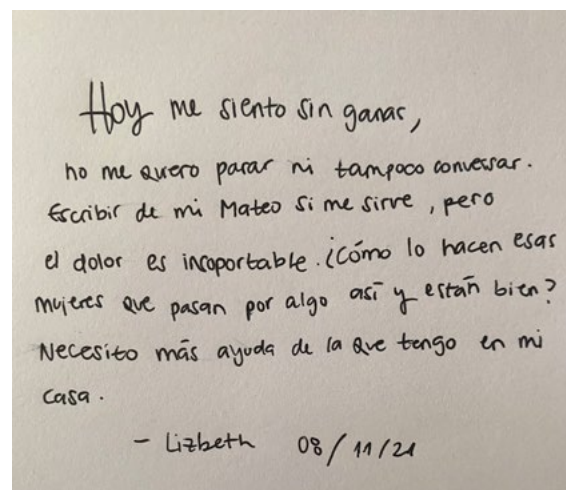 Hoy me siento sin ganas,
no me quero parar ni tampoco conversar.
Escribir de mi Mateo si me sirve, pero
el dolor es insoportable. ¿Cómo lo hacen esas
mujeres que pasan por algo así y están bien?
Necesito más ayuda de la que tengo en mi
casa.
- Lizbeth 08/11/21